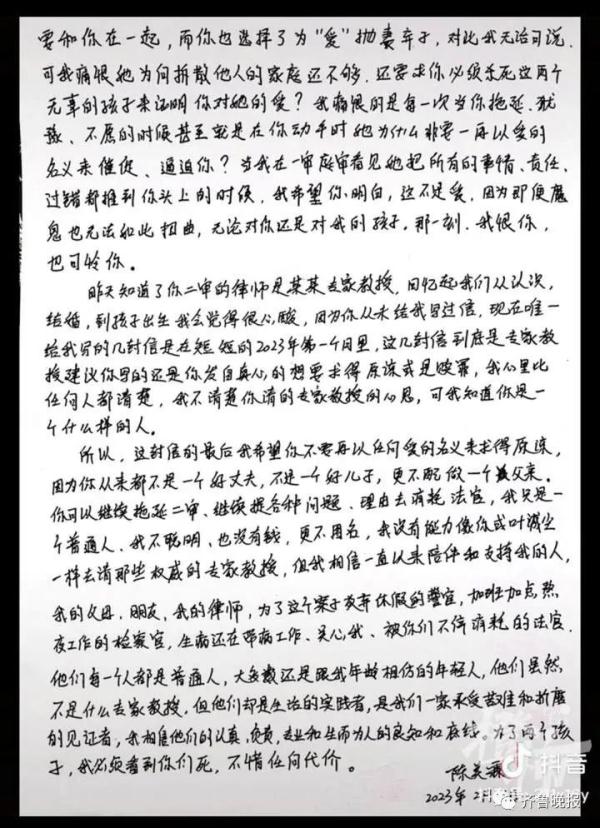 要和你在一起，而你也选择了为“爱”抛妻弃子，对此我无话可说．
可我痛恨她为何拆散他人的家庭还不够．还要求你必须杀死这两个
无辜的孩子来证明你对她的爱？我痛恨的是每一次当你拖延．犹
豫、不愿的时候甚至就是在你动手时她为什么非要一再以爱的
名义来催促、逼迫你？当我在一审庭审看见她把所有的事情、责任、
过错都推到你头上的时候，我希望你明白，这不是爱，因为即便魔
鬼也无法如此扭曲，无论对你还是对我的孩子．那一刻．我恨你，
也可怜你。
昨天知道了你二审的律师是某某专家教授，回忆起我们从认识，
结婚，到孩子出生我会觉得很心酸，因为你从未给我写过信，现在唯一
给我写的几封信是在短短的2023年第一个月里，这几封信到底是专家教
授建议你写的还是你发自真心的想要求得原谅或是赎罪，我心里比
任何人都清楚，我不清楚你请的专家教授的心思，可我知道你是一
个什么样的人。
所以，这封信的最后我希望你不要再以任何爱的名义来求得原谅，
因为你从来都不是一个好丈夫，不是一个好儿子，更不配做一个父亲。
你可以继续拖延二审、继续提各种问题、理由去消耗法官，我只是一
个普通人、我不聪明、也没有钱，更不出名，我没有能力像你或叶诚尘
一样去请那些权威的专家教授，但我相信一直以来陪伴和支持我的人，
我的父母．朋友，我的律师，为了这个案子放弃休假的警官，加班加点，熬
夜工作的检察官，生病还在带病工作、关心我、被你们不停消耗的法官．
他们每一个人都是普通人，大多数还是跟我年龄相仿的年轻人，他们虽然
不是什么专家教授，但他们却是生活的实践者，是我们一家承受苦难和折磨
的见证者，我相信他们的认真，负责，专业和生而为人的良知和底线。为了两个孩
子，我必须看到你们死，不惜任何代价。
陈美霖
2023年2月
抖音
齐鲁晚报